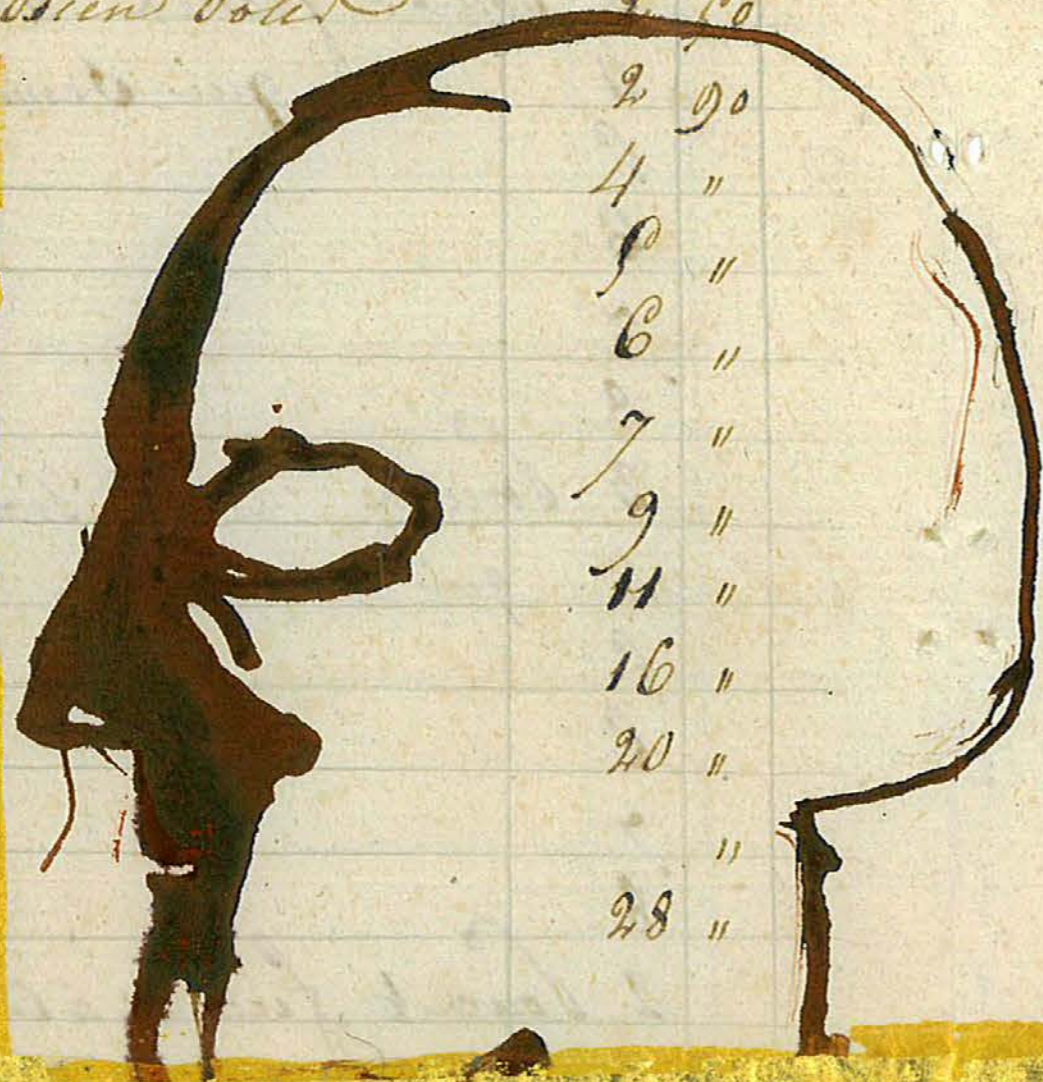 2 90
4 "
5 "
6 "
7 "
9 "
11 "
16 "
20 "
"
28 "